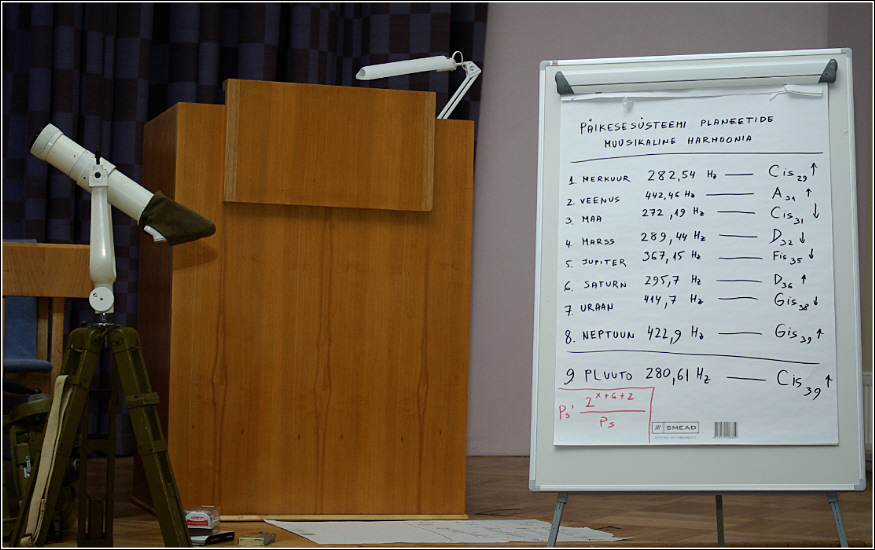 PÄIKESESÜSTEEMI PLANEETIDE
MUUSIKALINE HARMOONIA
1. MERKUUR 282,54 Hz — Cis29 ↑
2. VEENUS 442,46 Hz — A31 ↑
3. MAA 272,19 Hz — Cis31 ↓
4. MARSS 289,44 Hz — D32 ↓
5. JUPITER 367,15 Hz — Fis35 ↓
6. SATURN 295,7 Hz — D36 ↑
7. URAAN 414,7 Hz — Gis38 ↓
8. NEPTUUN 422,9 Hz — Gis39 ↑
9 PLUUTO 280,61 Hz — Cis39 ↑
2^x+6+2
Ps'
Ps
SMEAD